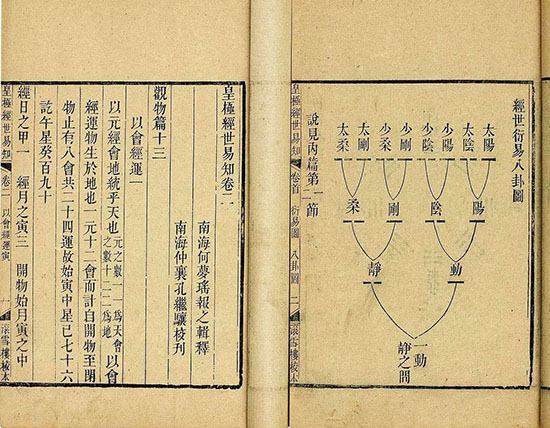 經世衍易八卦圖
太陽
太陰
少陽
少陰
少剛
少柔
太剛
太柔
陽
陰
剛
柔
動
靜
一動
靜之間
說見內篇第一節
皇極經世易知 卷首 衍易圖 八卦圖 二 滾雪樓校本
皇極經世易知卷二
南海何夢瑤報之輯釋
南海仲襄孔繼驤校刊
觀物篇十三
以會經運一
以元經會地統乎天也元之數一一為天會之數十二二為地以會
經運物生於地也一元十二會而計自開物至閉
物止有八會共二十四運故始寅中星己七十六
訖午星癸百九十
經日之甲一 經月之寅三 開物始月寅之中
皇極經世易知 卷二 以會經運寅 一 滾雪樓校本